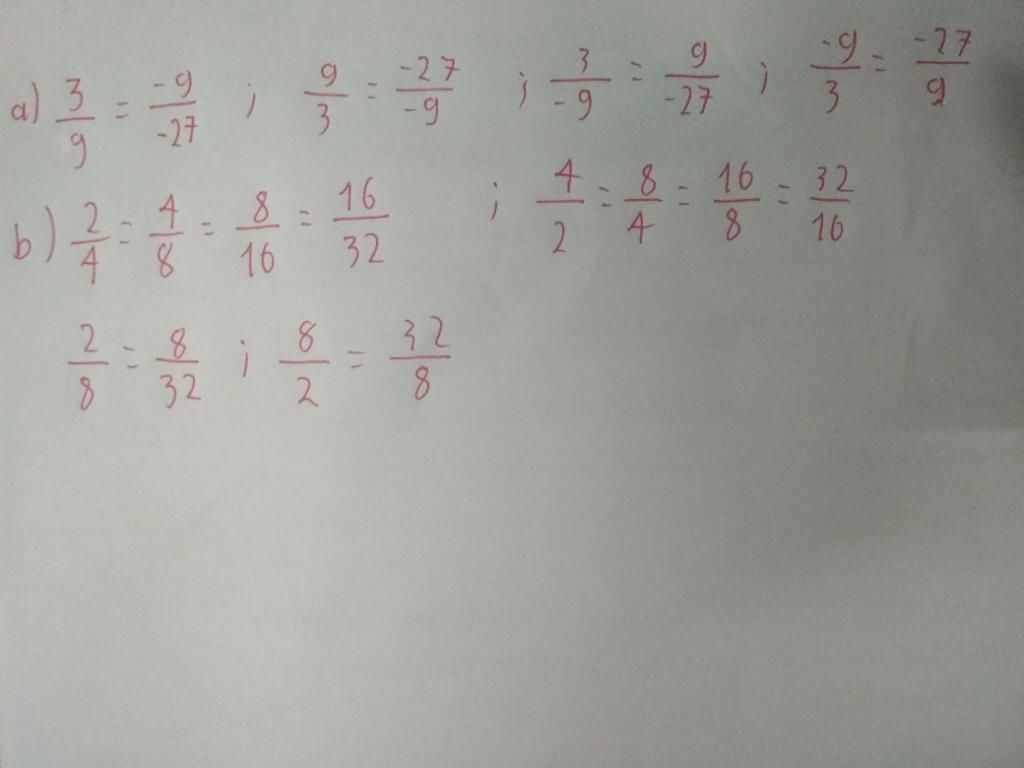 a) 3/9 = -9/-27 ; 9/3 = -27/-9 ; 3/-9 = 9/-27 ; -9/3 = -27/9
b) 2/4 = 4/8 = 8/16 = 16/32 ; 4/2 = 8/4 = 16/8 = 32/16
2/8 = 8/32 ; 8/2 = 32/8